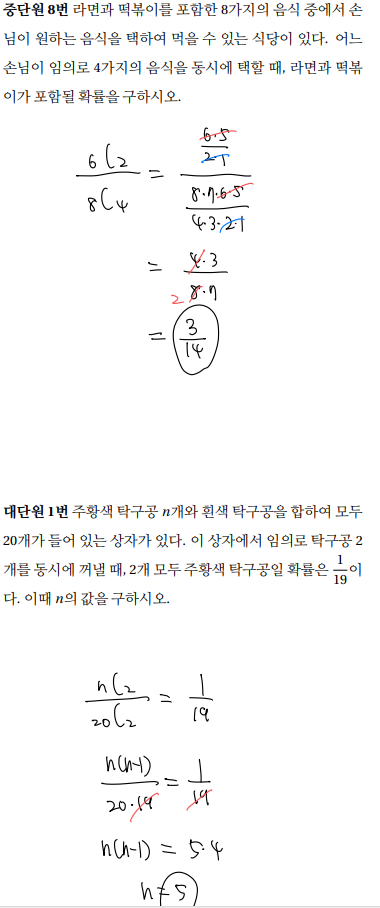 중단원 8번 라면과 떡볶이를 포함한 8가지의 음식 중에서 손
님이 원하는 음식을 택하여 먹을 수 있는 식당이 있다. 어느
손님이 임의로 4가지의 음식을 동시에 택할 때, 라면과 떡볶
이가 포함될 확률을 구하시오.
6C2 / 8C4 = (6·5 / 2·1) / (8·7·6·5 / 4·3·2·1)
= 4·3 / 8·7
2
= 3/14
대단원 1번 주황색 탁구공 n개와 흰색 탁구공을 합하여 모두
20개가 들어 있는 상자가 있다. 이 상자에서 임의로 탁구공 2
개를 동시에 꺼낼 때, 2개 모두 주황색 탁구공일 확률은 1/19이
다. 이때 n의 값을 구하시오.
nC2 / 20C2 = 1/19
n(n-1) / 20·19 = 1/19
n(n-1) = 5·4
n=5